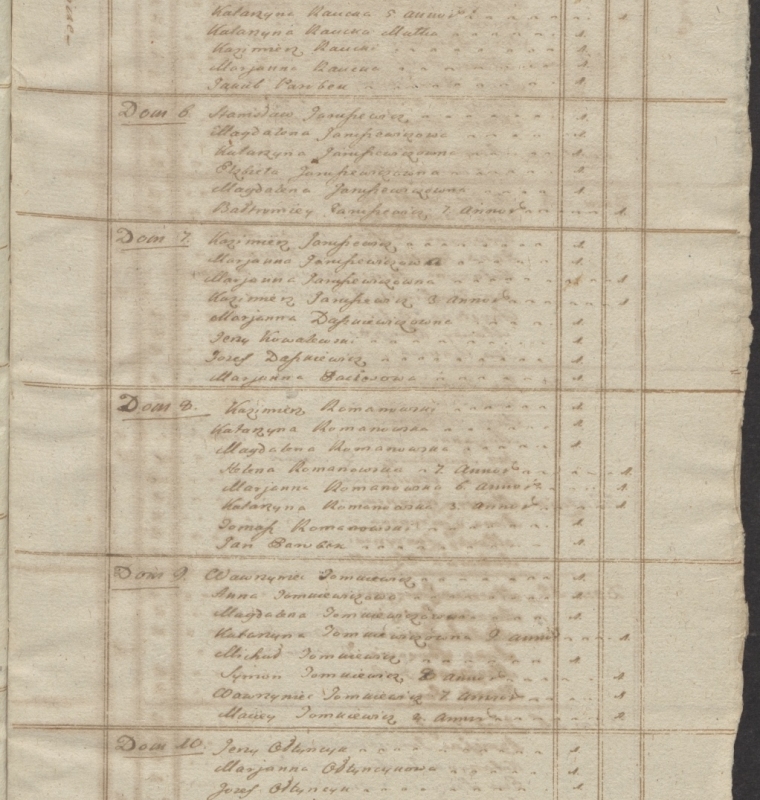 Katarzyna Raucka 5 Annor
Katarzyna Raucka Matka
Kazimierz Raucki
Marjanna Raucka
Jakub Parobek
Dom 6. Stanisław Januszewicz 1.
Magdalena Januszewiczowa 1.
Katarzyna Januszewiczowna 1.
Elzbieta Januszewiczowna 1.
Magdalena Januszewiczowna 1.
Bałtromiey Januszewicz 7. Annor 1.
Dom 7. Kazimierz Januszewicz 1.
Marjanna Januszewiczowa 1.
Marjanna Januszewiczowna 1.
Kazimierz Januszewicz 3 Annor 1.
Marjanna Daszkiewiczowna 1.
Jerzy Kowalewski 1.
Jozef Daszkiewicz 1.
Marjanna 1.
Dom 8. Kazimierz Romanowski 1.
Katarzyna Romanowska 1.
Magdalena Romanowska 1.
Helena Romanowska 7. Annor 1.
Marjanna Romanowska 6 Annor 1.
Katarzyna Romanowska 3. Annor 1.
Tomasz Romanowski 1.
Jan Parobek 1.
Dom 9. Wawrzyniec Tomkiewicz 1.
Anna Tomkiewiczowa 1.
Magdalena Tomkiewiczowna 1.
Katarzyna Tomkiewiczowna 9 Annor 1.
Michał Tomkiewicz 1.
Symon Tomkiewicz Annor 1.
Wawrzyniec Tomkiewicz 7. Annor 1.
Maciey Tomkiewicz Annor 1.
Dom 10. Jerzy Ołtynczyk 1.
Marjanna Ołtynczykowa 1.
Jozef Ołtynczyk 1.